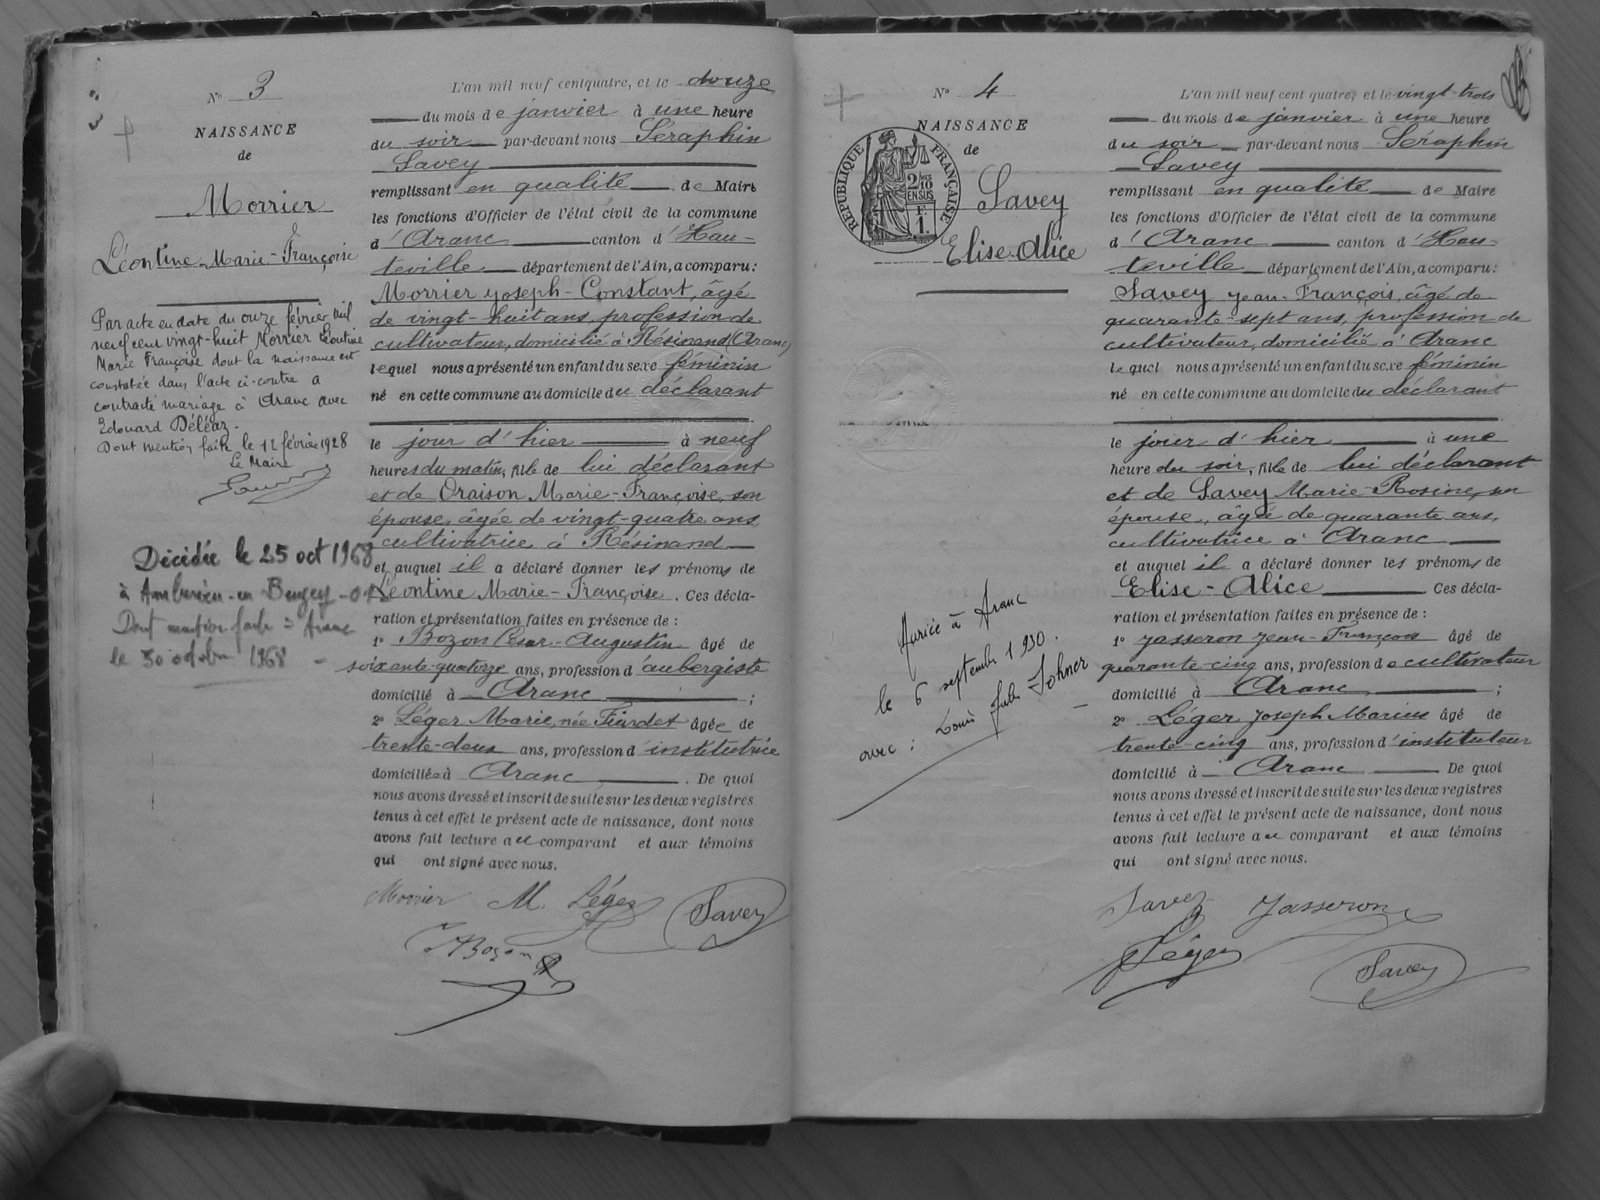 N° 3
NAISSANCE
de
Morrier
Léontine Marie-Françoise
Par acte en date du onze février mil
neuf cent vingt-huit Morrier Léontine
Marie Françoise dont la naissance est
constatée dans l'acte ci-contre a
contracté mariage à Aranc avec
Edouard Déléaz.
Dont mention faite le 12 février 1928
Le Maire
Décédée le 25 oct 1968
à Ambérieu-en-Bugey - 01
Dont mention faite à Aranc
le 30 octobre 1968 -
L'an mil neuf cent quatre, et le douze
du mois de janvier à une heure
du soir par-devant nous Séraphin
Savey
remplissant en qualité de Maire
les fonctions d'Officier de l'état civil de la commune
d'Aranc canton d'Hau-
teville département de l'Ain, a comparu:
Morrier Joseph-Constant, âgé
de vingt-huit ans, profession de
cultivateur, domicilié à Résinand (Aranc)
lequel nous a présenté un enfant du sexe féminin
né en cette commune au domicile du déclarant
le jour d'hier à neuf
heures du matin, fille de lui déclarant
et de Oraison Marie-Françoise, son
épouse, âgée de vingt-quatre ans,
cultivatrice à Résinand
et auquel il a déclaré donner les prénoms de
Léontine Marie-Françoise. Ces décla-
ration et présentation faites en présence de :
1° Bozon César-Augustin âgé de
soixante-quatorze ans, profession d'aubergiste
domicilié à Aranc ;
2° Léger Marie, née Fiardet âgée de
trente-deux ans, profession d'institutrice
domiciliée à Aranc. De quoi
nous avons dressé et inscrit de suite sur les deux registres
tenus à cet effet le présent acte de naissance, dont nous
avons fait lecture au comparant et aux témoins
qui ont signé avec nous.
Morrier M. Léger Savey
Bozon
N° 4
NAISSANCE
de
RÉPUBLIQUE FRANÇAISE
2/10
EN SUS
1.
Savey
Elise-Alice
Mariée à Aranc
le 6 septembre 1930.
avec : Louis Jules Johner
L'an mil neuf cent quatre, et le vingt-trois
du mois de janvier à une heure
du soir par-devant nous Séraphin
Savey
remplissant en qualité de Maire
les fonctions d'Officier de l'état civil de la commune
d'Aranc canton d'Hau-
teville département de l'Ain, a comparu:
Savey Jean-François, âgé de
quarante-sept ans, profession de
cultivateur, domicilié à Aranc
lequel nous a présenté un enfant du sexe féminin
né en cette commune au domicile du déclarant
le jour d'hier à une
heure du soir, fille de lui déclarant
et de Savey Marie-Rosine, son
épouse, âgée de quarante ans,
cultivatrice à Aranc
et auquel il a déclaré donner les prénoms de
Elise-Alice Ces décla-
ration et présentation faites en présence de :
1° Jasseron Jean-François âgé de
quarante-cinq ans, profession de cultivateur
domicilié à Aranc ;
2° Léger Joseph Marius âgé de
trente-cinq ans, profession d'instituteur
domicilié à Aranc De quoi
nous avons dressé et inscrit de suite sur les deux registres
tenus à cet effet le présent acte de naissance, dont nous
avons fait lecture au comparant et aux témoins
qui ont signé avec nous.
Savey Jasseron
Léger Savey